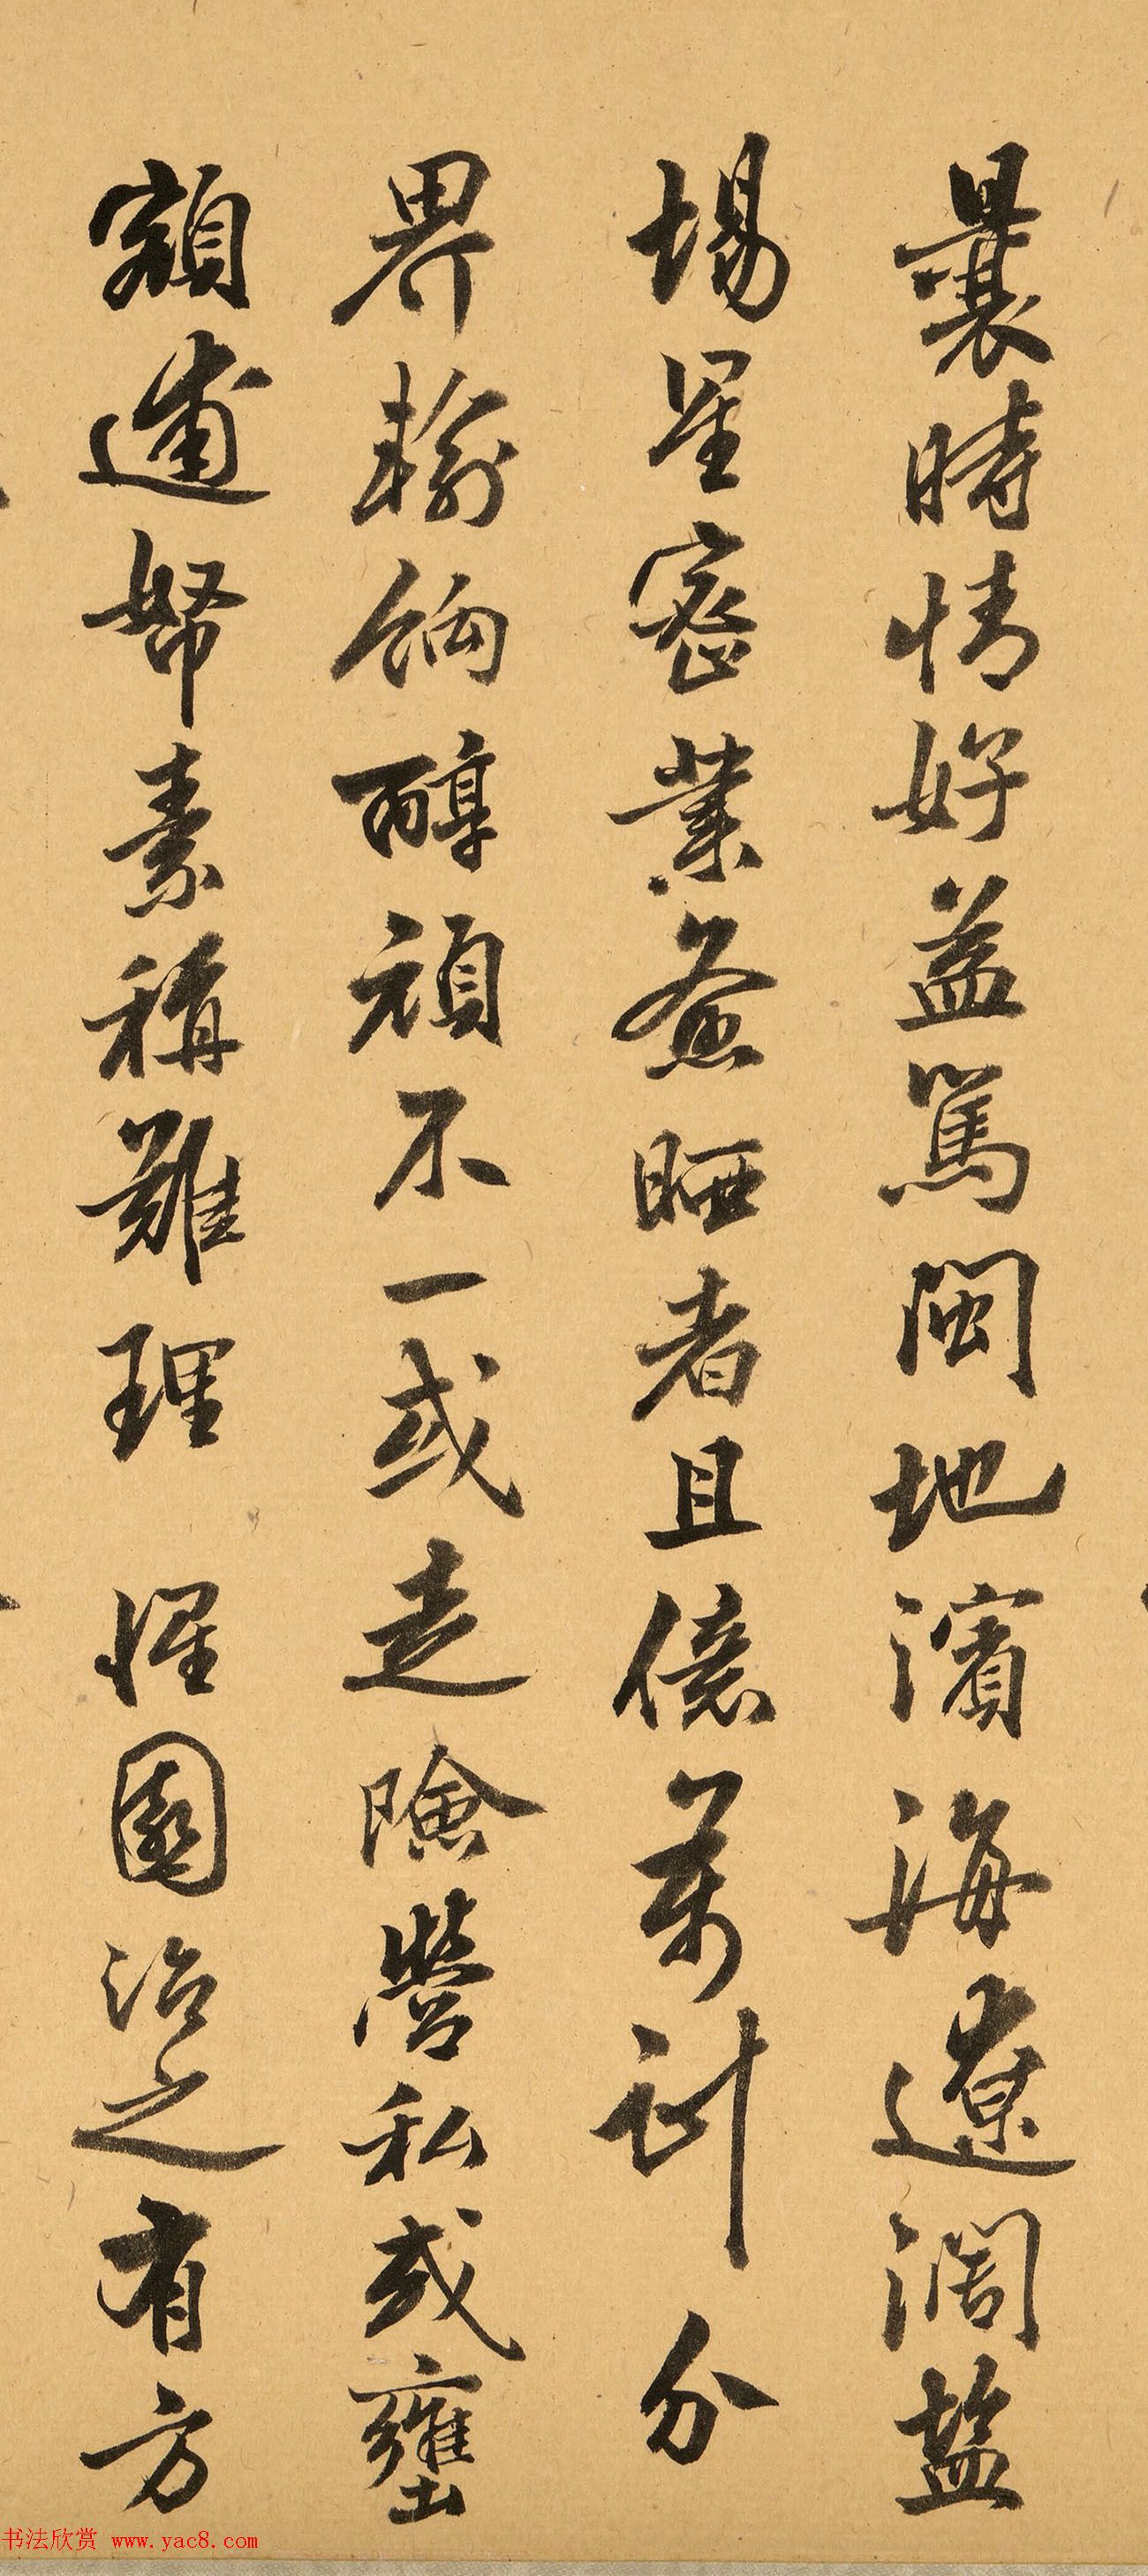 曩時情好益篤閩地濱海遼闊塩
場星密業晒者且億萬計分
界輸餉醇頑不一或走險營私或壅
額逋帑素稱難理 惺園治之有方
书法欣赏 www.yac8.com